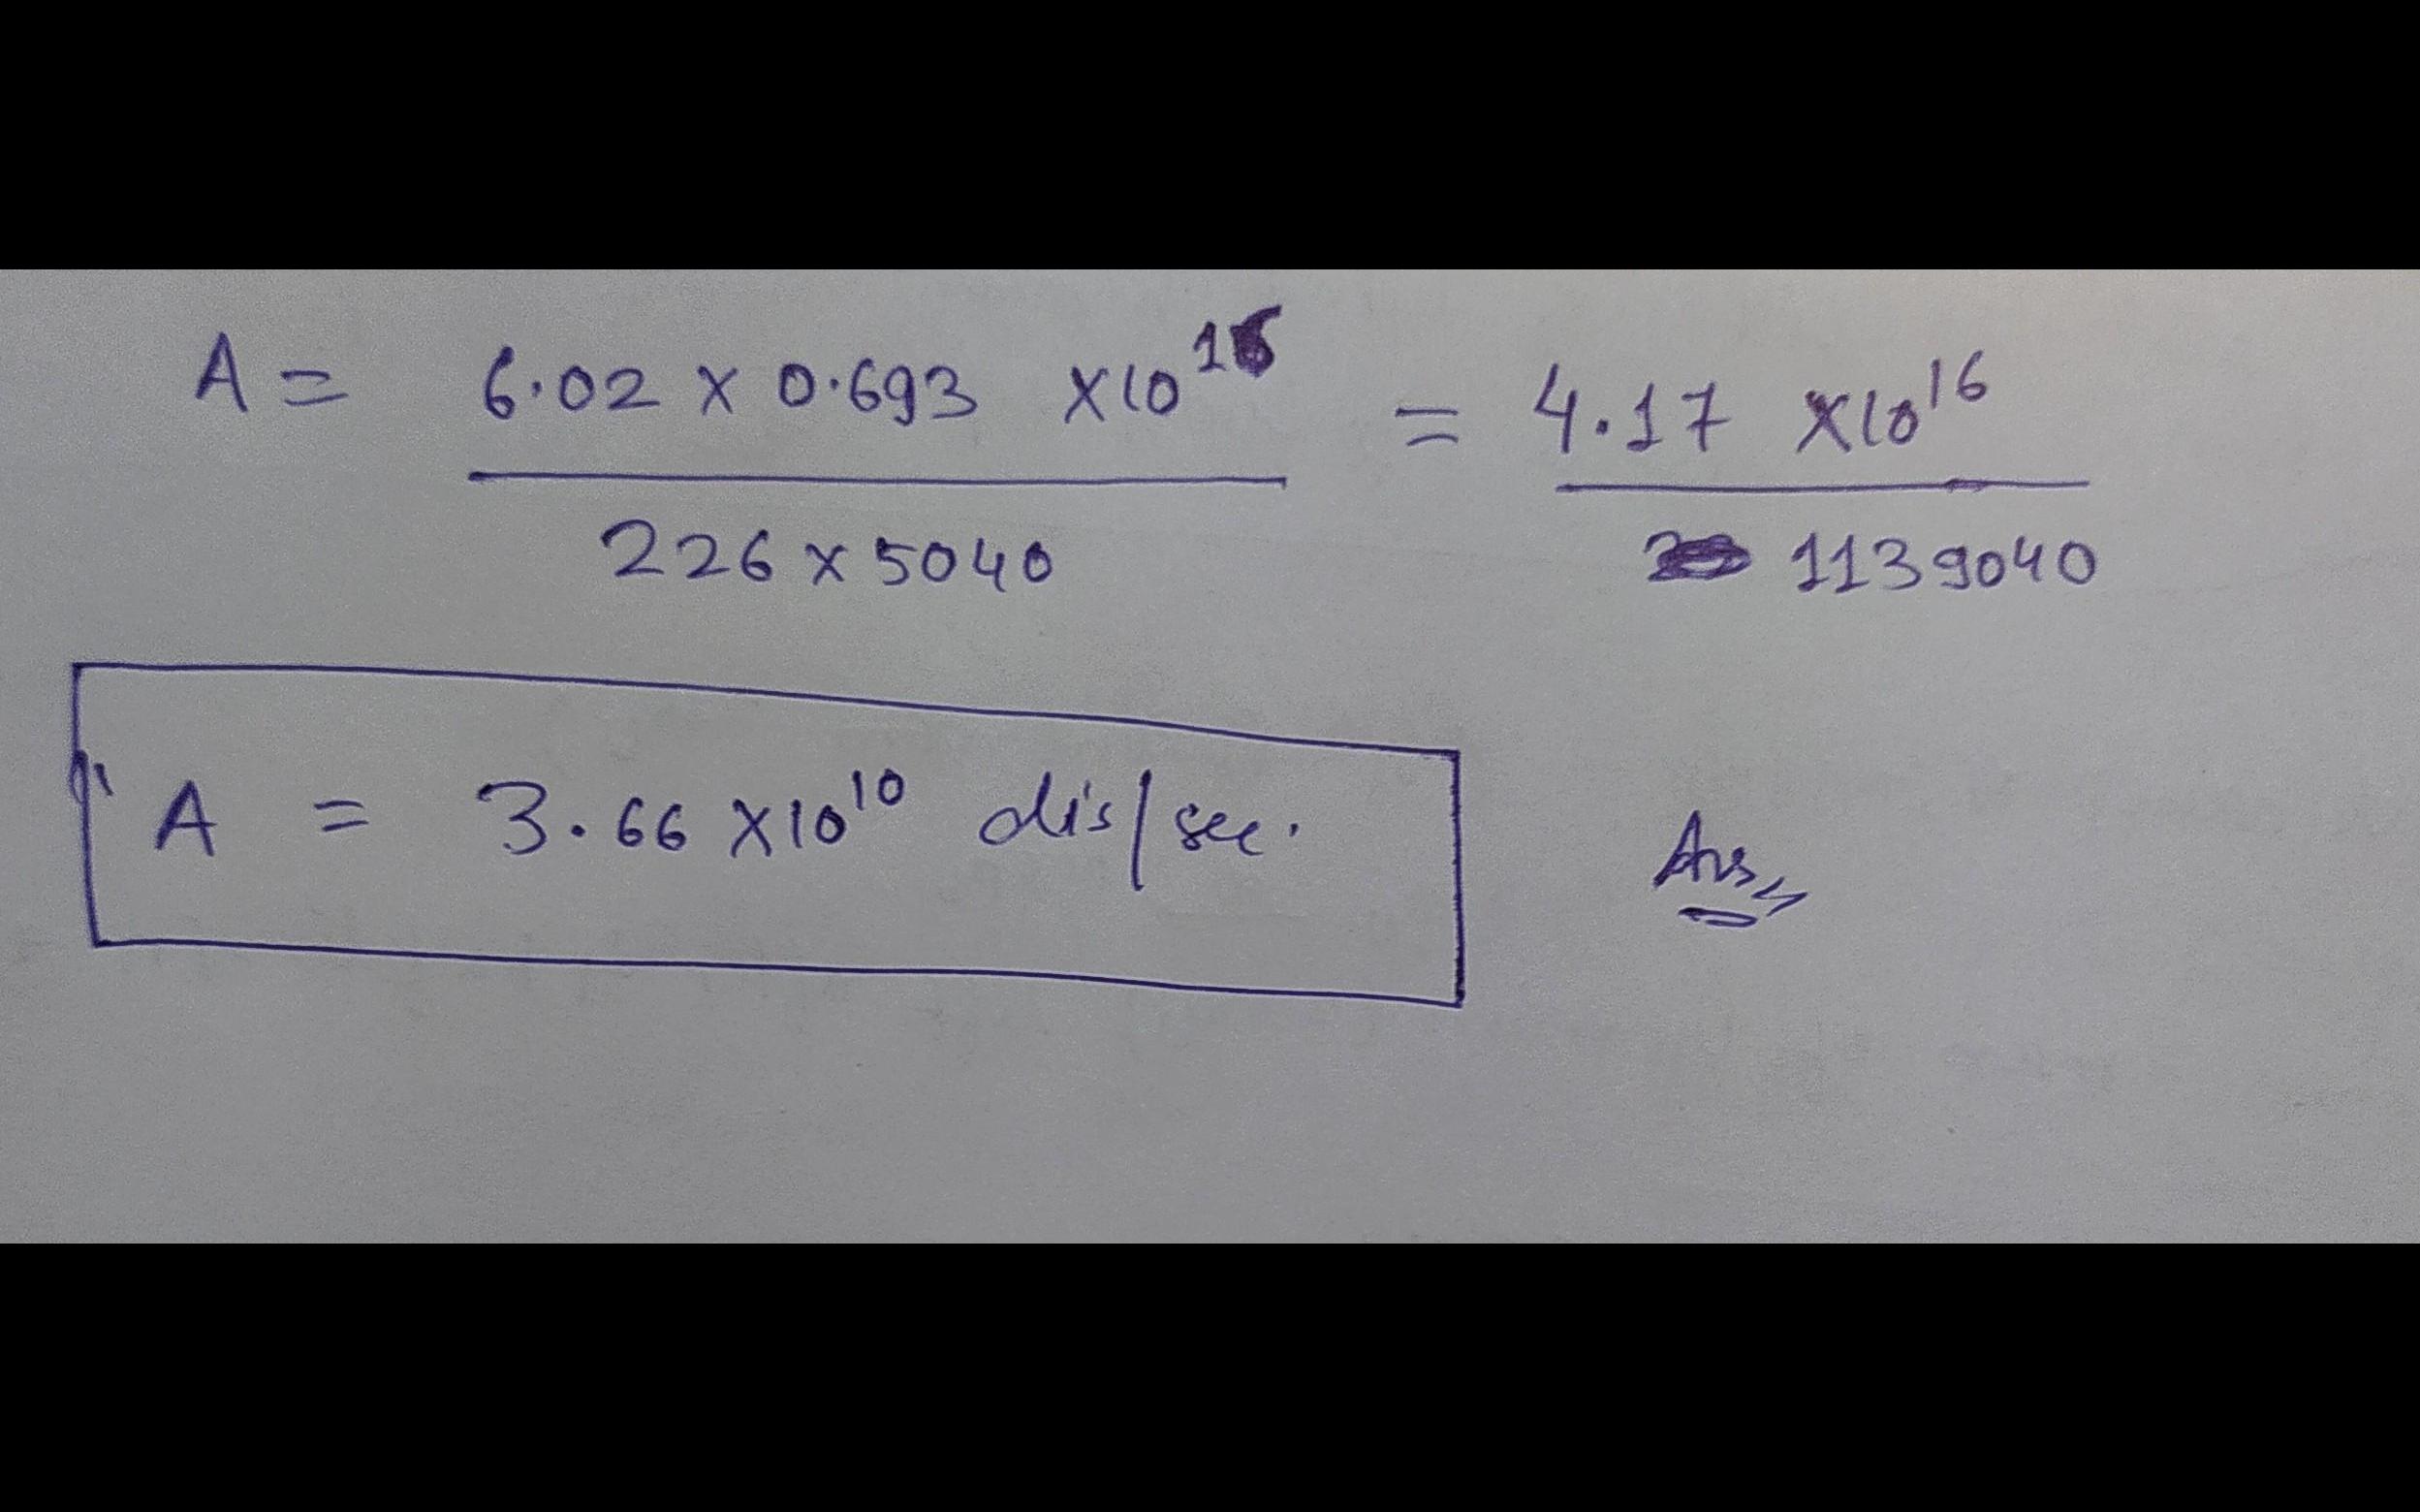 A = 6.02 x 0.693 x10^16 / 226 x 5040 = 4.17 x10^16 / 1139040
A = 3.66 x10^10 dis/sec.
Ans